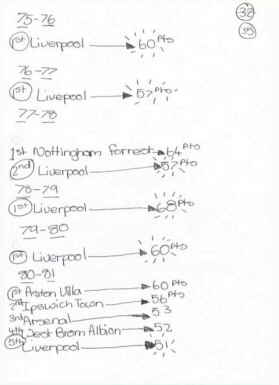 32
35
75-76
1st Liverpool 60 Pts
76-77
1st Liverpool 57 Pts
77-78
1st Nottingham Forrest 64 Pts
2nd Liverpool 57 Pts
78-79
1st Liverpool 68 Pts
79-80
1st Liverpool 60 Pts
80-81
1st Aston Villa 60 Pts
2nd Ipswich Town 56 Pts
3rd Arsenal 53
4th West Brom Albion 52
5th Liverpool 51